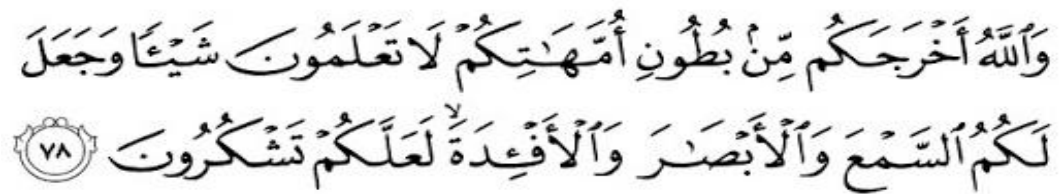 وَٱللَّهُ أَخۡرَجَكُم مِّنۢ بُطُونِ أُمَّهَٰتِكُمۡ لَا تَعۡلَمُونَ شَيۡـٔٗا وَجَعَلَ
لَكُمُ ٱلسَّمۡعَ وَٱلۡأَبۡصَٰرَ وَٱلۡأَفۡـِٔدَةَ ۙ لَعَلَّكُمۡ تَشۡكُرُونَ ٧٨